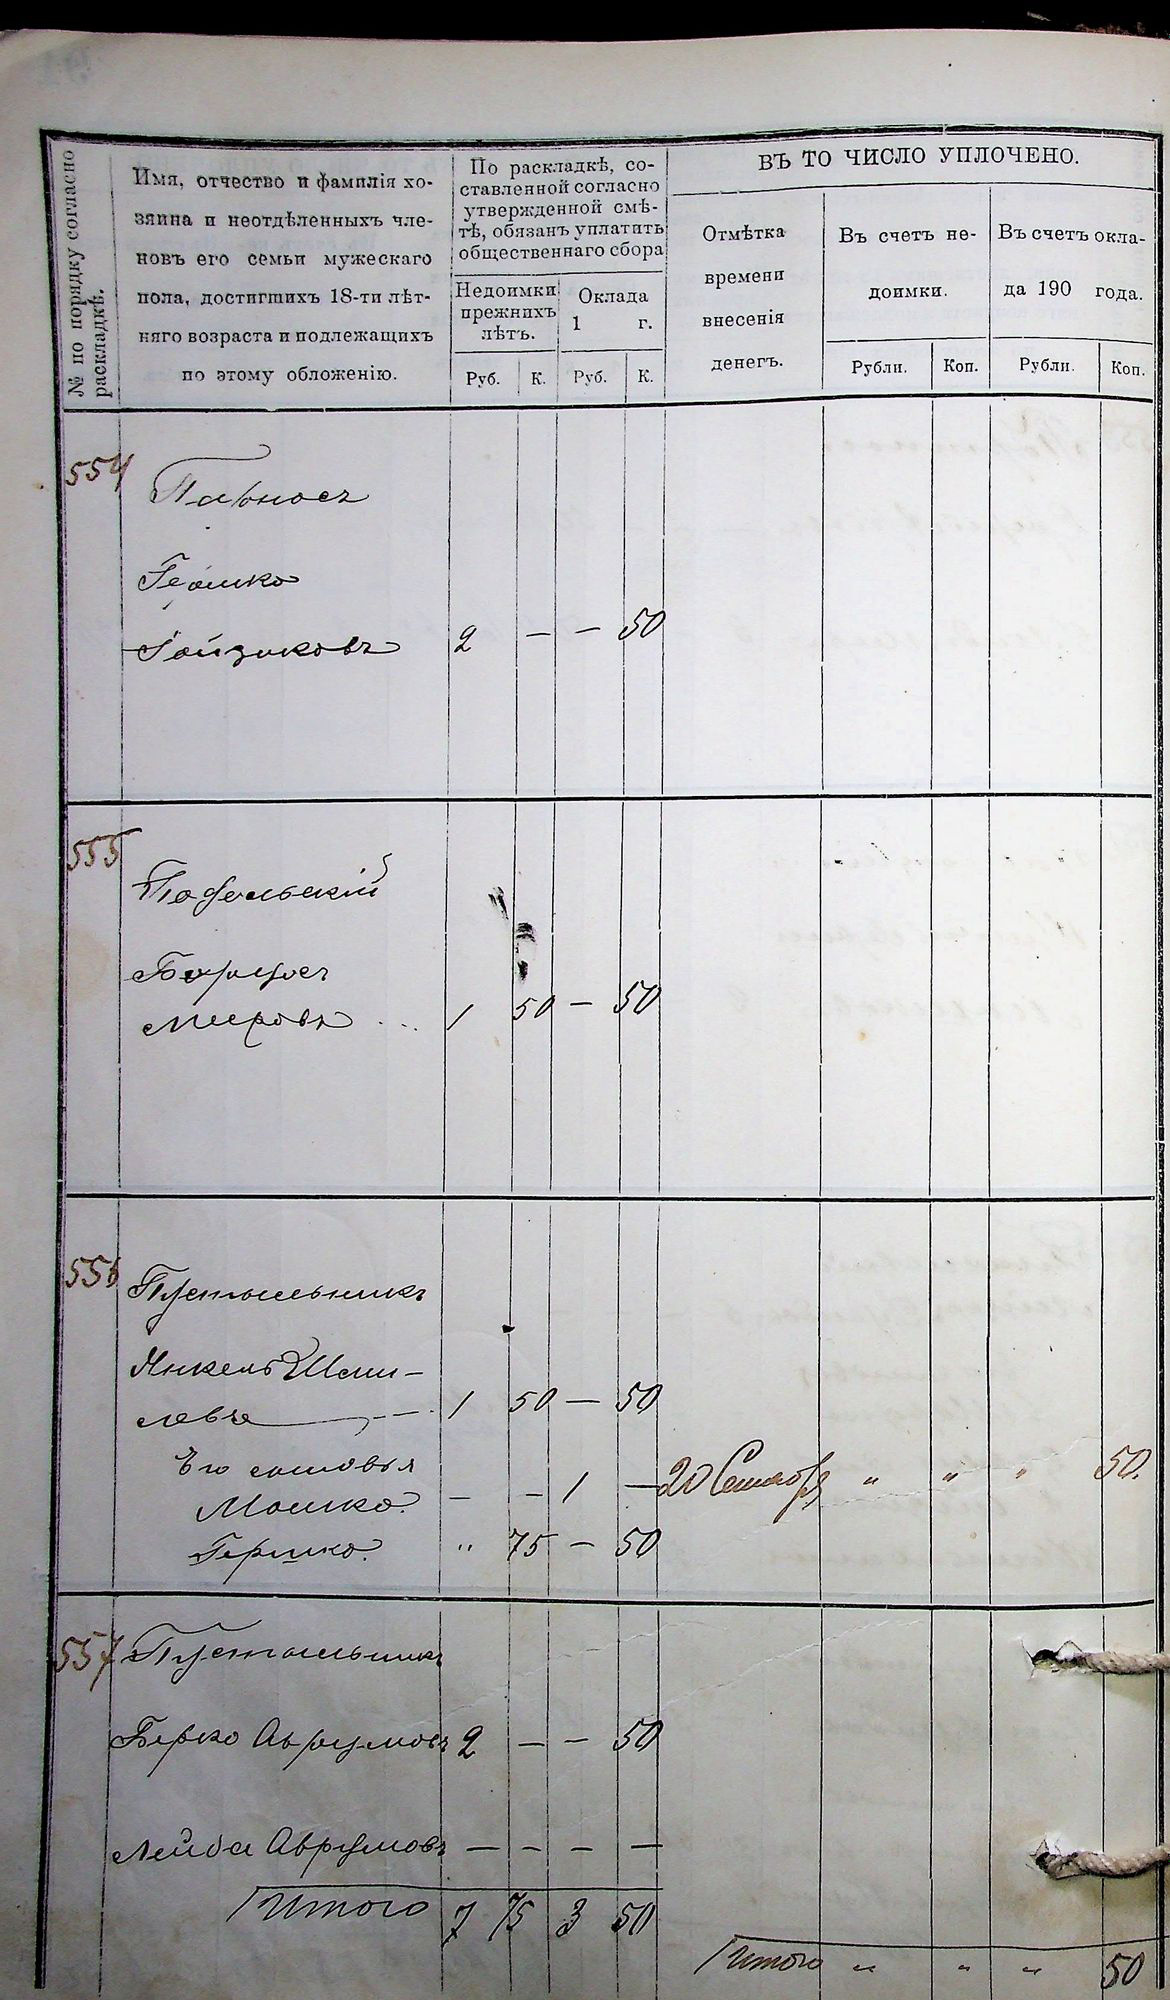 № по порядку согласно
раскладкѣ.
Имя, отчество и фамилія хо-
зяина и неотдѣленныхъ чле-
новъ его семьи мужескаго
пола, достигшихъ 18-ти лѣт-
няго возраста и подлежащихъ
по этому обложенію.
По раскладкѣ, со-
ставленной согласно
утвержденной смѣ-
тѣ, обязанъ уплатить
общественнаго сбора
Недоимки
прежнихъ
лѣтъ.
Оклада
1 г.
Руб. К. Руб. К.
ВЪ ТО ЧИСЛО УПЛОЧЕНО.
Отмѣтка
времени
внесенія
денегъ.
Въ счетъ не-
доимки.
Въ счетъ окла-
да 190 года.
Рубли. Коп. Рубли. Коп.
554
Парносъ
Гершко
2 — — 50
555
Подольскій
Борухъ
Мееровъ 1 50 — 50
556
Пустыльникъ
Янкель Шми-
левъ 1 50 — 50
Его сыновья
Мошко. — — 1 — 20 Сентября „ „ „ 50.
Гершко. „ 75 — 50
557
Пустыльникъ
Берко Аврумовъ 2 — — 50
Лейба Аврумовъ — — — —
Итого 7 75 3 50
Итого „ „ „ 50